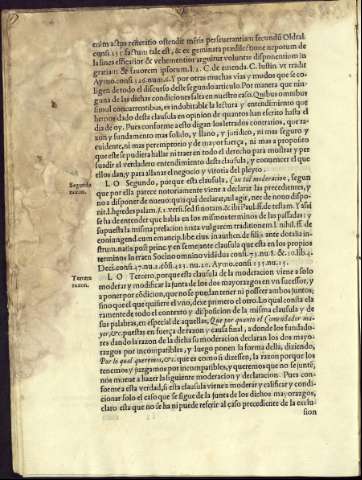 enim actus reiteratio ostendit maiorem perseuerantiam secundũ Oldral.
consi.135. factum tale est, & ex geminata prædilectione nepotum de
la linea efficitur & vehementior arguitur voluntas disponentis in
gratiam & fauorem ipsorum. l. 2. C. de
Aymo. consi. Y por otras muchas vias y modos que se co-
ligen de todo el discurso deste segundo articulo. Por manera que nin-
guna de las dichas condiciones falta en nuestro caso. Quibus omnibus
simul concurrentibus, es indubitable la lectura y entendimiento que
hemos dado desta clausula en opinion de quantos han escrito hasta el
dia de oy. Pues conforme a esto digan los letrados contrarios, que ra-
zon y fundamento mas solido, y llano, y juridico, ni mas seguro y
euidente, ni mas peremptorio y de mayor fuerça, ni mas a proposito
que este se pudiera hallar ni traer en todo el derecho para mostrar y per
suadir al verdadero entendimiento desta clausula, y conuencer el que
ellos dan, y para allanar el negocio y vitoria del pleyto.
Segunda
razon.
LO Segundo, porque esta clausula, Con tal moderacion, segun
que por ella parece notoriamente viene a declarar las precedentes, y
no a disponer de nueuo: quia qui declarat, nil agit, nec de nouo dispo-
nit. l. hæredes palam. §. 1. versi. sed si notam. & ibi Paul. ff. de testam. Y assi
se ha de entender que habla en los mismos terminos de las passadas: y
supuesta la misma prelacion
terminos lo trata Socino
Deci. cons.
Tercera
razon.
LO Tercero, porque esta clausula de la moderacion viene a solo
moderar y modificar la junta de los dos mayorazgos en vn sucessor, y
a poner por cõdicion, que no se puedan tener ni posseer ambos juntos,
sino que el que quisiere el vno, dexe primero el otro. Lo qual consta cla
ramente de todo el contexto y disposicion de la misma clausula y de
sus palabras, en especial de aquellas, Que por quanto el Comendador ma-
yor, &c. puestas en fuerça de razon y causa final, a donde los fundado-
res dando la razon de la dicha moderacion declaran los dos mayo-
razgos por incompatibles, y luego ponen la forma della, diziendo,
Por lo qual queremos, &c. que es como si dixessen, la razon porque los
tenemos y juzgamos por incompatibles, y queremos que no se junte,
nos mueue a hazer la siguiente moderacion y declaracion. Pues con-
forme a esta verdad, si esta clausula viene a moderar y calificar y con-
dicionar solo el caso que se sigue de la junta de los dichos mayorazgos,
claro esta que no se ha ni puede referir al caso precedente de la exclu-
sion